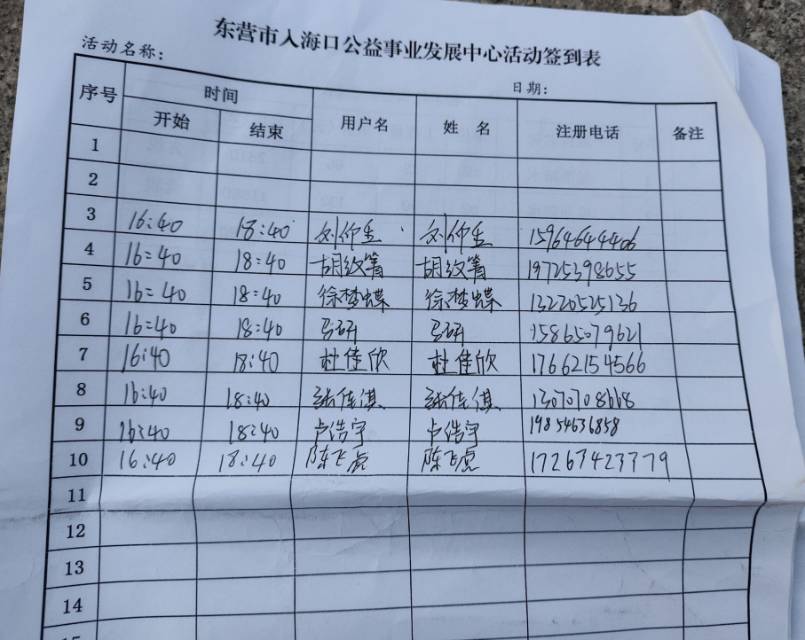 东营市入海口公益事业发展中心活动签到表
活动名称：
日期：
序号 时间 用户名 姓 名 注册电话 备注
开始 结束
1
2
3 16:40 18:40 刘仰圣 刘仰圣 15964644406
4 16:40 18:40 胡纹箐 胡纹箐 19725398655
5 16:40 18:40 徐梦蝶 徐梦蝶 13220525136
6 16:40 18:40 马研 马研 15865079621
7 16:40 18:40 杜佳欣 杜佳欣 17662154566
8 16:40 18:40 张佳淇 张佳淇
9 16:40 18:40 卢浩宇 卢浩宇 19854636858
10 16:40 18:40 陈飞虎 陈飞虎 17267423779
11
12
13
14